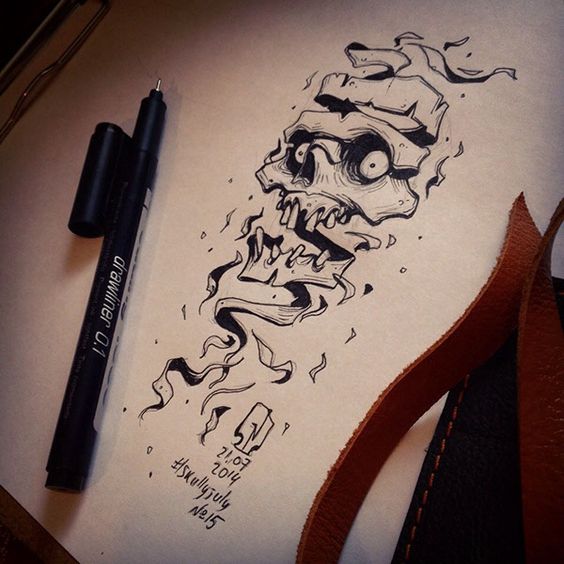 drawliner 0.1
21.07
2014
#Skullyjuly
№15